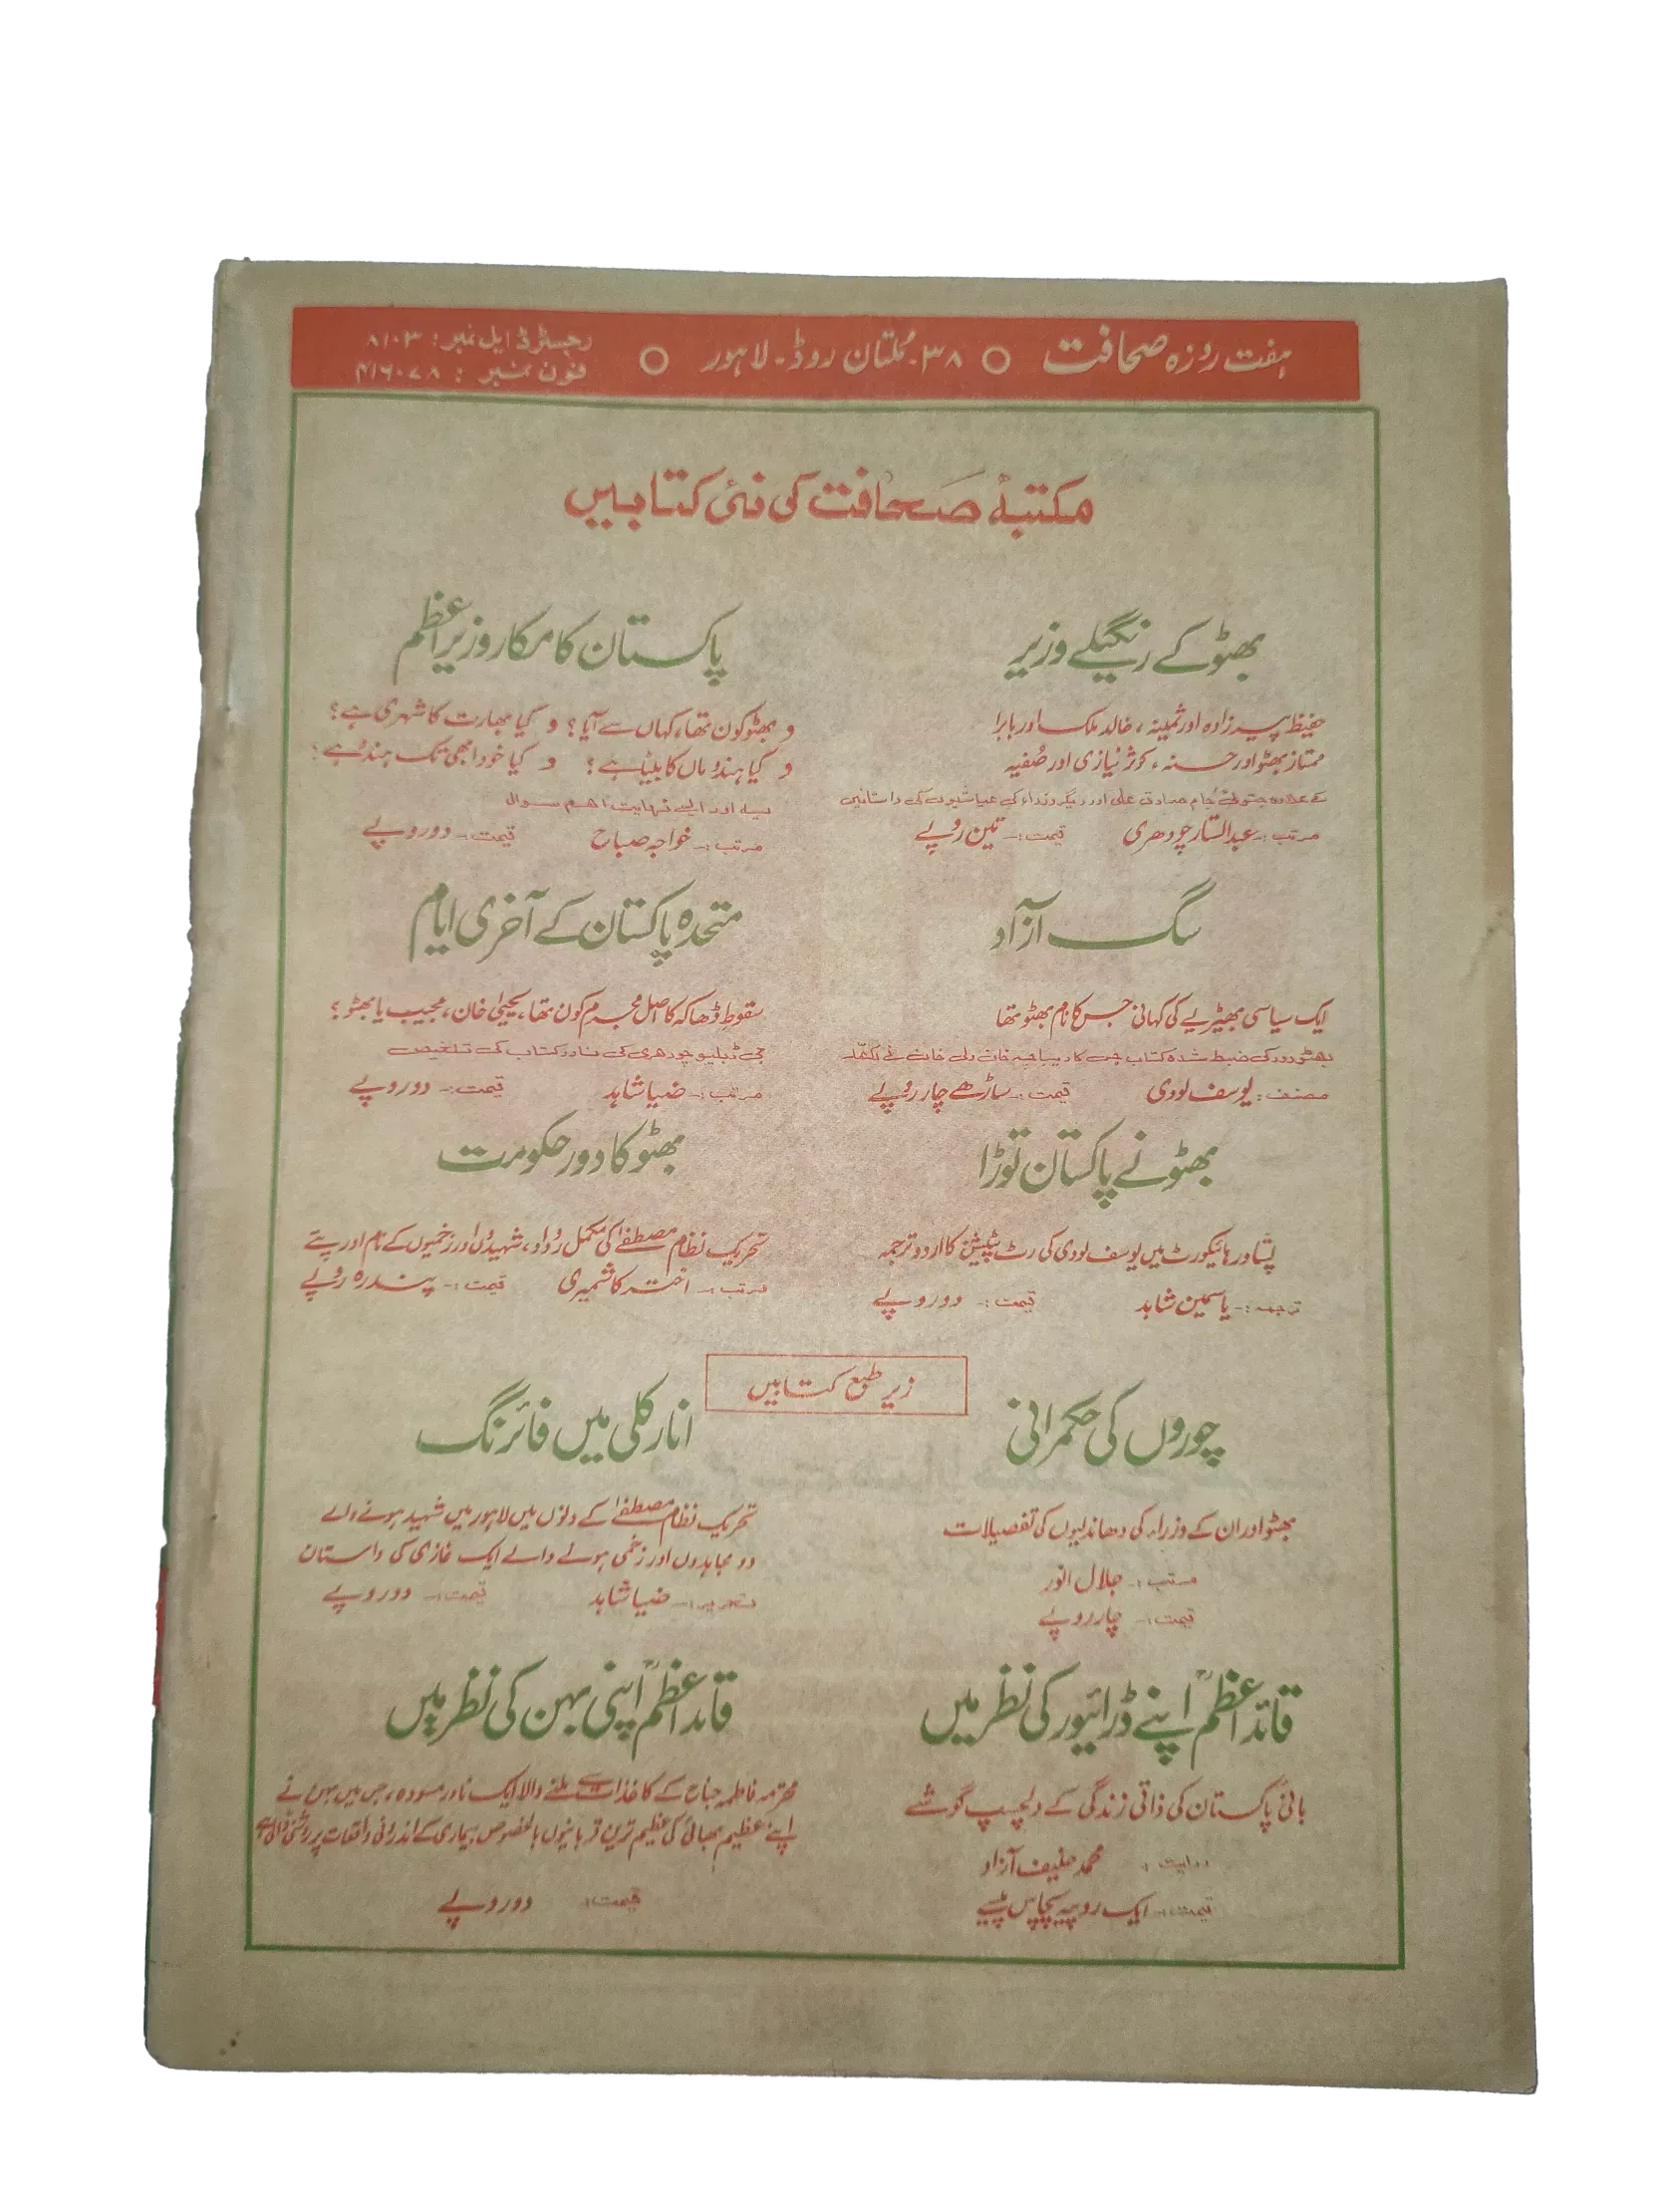 ہفت روزہ صحافت ○ ۳۸۔ ملتان روڈ۔ لاہور ○
رجسٹرڈ ایل نمبر: ۸۱۰۳
فون نمبر: ۴۱۶۰۷۸
مکتبۂ صحافت کی نئی کتابیں
بھٹو کے رنگیلے وزیر
حفیظ پیرزادہ اور ثمینہ، خالد ملک اور بابرا
ممتاز بھٹو اور حسنہ، کوثر نیازی اور صفیہ
کے علاوہ جتوئی جام صادق علی اور دیگر وزراء کی عیاشیوں کی داستانیں
مرتب:۔ عبدالستار چودھری قیمت:۔ تین روپے
پاکستان کا مکار وزیراعظم
و بھٹو کون تھا، کہاں سے آیا؟ و کیا بھارت کا شہری ہے؟
و کیا ہندو ماں کا بیٹا ہے؟ و کیا خود ابھی تک ہندو ہے؟
یہ اور ایسے نہایت اہم سوال
مرتب:۔ خواجہ صباح قیمت:۔ دو روپے
سگ آزاد
ایک سیاسی بھیڑیے کی کہانی جس کا نام بھٹو تھا
بھٹو دور کی ضبط شدہ کتاب جس کا دیباچہ خان ولی خان نے لکھا۔
مصنف: یوسف لودی قیمت:۔ ساڑھے چار روپے
متحدہ پاکستان کے آخری ایام
سقوطِ ڈھاکہ کا اصل مجرم کون تھا، یحییٰ خان، مجیب یا بھٹو؟
جی ڈبلیو چودھری کی نادر کتاب کی تلخیص
مرتب:۔ ضیا شاہد قیمت:۔ دو روپے
بھٹو نے پاکستان توڑا
پشاور ہائیکورٹ میں یوسف لودی کی رٹ پٹیشن کا اردو ترجمہ
ترجمہ:۔ یاسمین شاہد قیمت:۔ دو روپے
بھٹو کا دورِ حکومت
تحریک نظام مصطفےٰ کی مکمل روداد، شہیدوں اور زخمیوں کے نام اور پتے
مرتب:۔ اختر کاشمیری قیمت:۔ پندرہ روپے
زیر طبع کتابیں
چوروں کی حکمرانی
بھٹو اور ان کے وزراء کی دھاندلیوں کی تفصیلات
مرتب:۔ جلال انور
قیمت:۔ چار روپے
انارکلی میں فائرنگ
تحریک نظام مصطفےٰ کے دنوں میں لاہور میں شہید ہونے والے
دو مجاہدوں اور زخمی ہونے والے ایک غازی کی داستان
تحریر:۔ ضیا شاہد قیمت:۔ دو روپے
قائداعظمؒ اپنے ڈرائیور کی نظر میں
بانیٔ پاکستان کی ذاتی زندگی کے دلچسپ گوشے
روایت: محمد حنیف آزاد
قیمت:۔ ایک روپیہ پچاس پیسے
قائداعظمؒ اپنی بہن کی نظر میں
محترمہ فاطمہ جناح کے کاغذات سے ملنے والا ایک نادر مسودہ، جس میں بہن نے
اپنے عظیم بھائی کی عظیم ترین قربانیوں بالخصوص بیماری کے اندرونی واقعات پر روشنی ڈالی ہے
قیمت: دو روپے